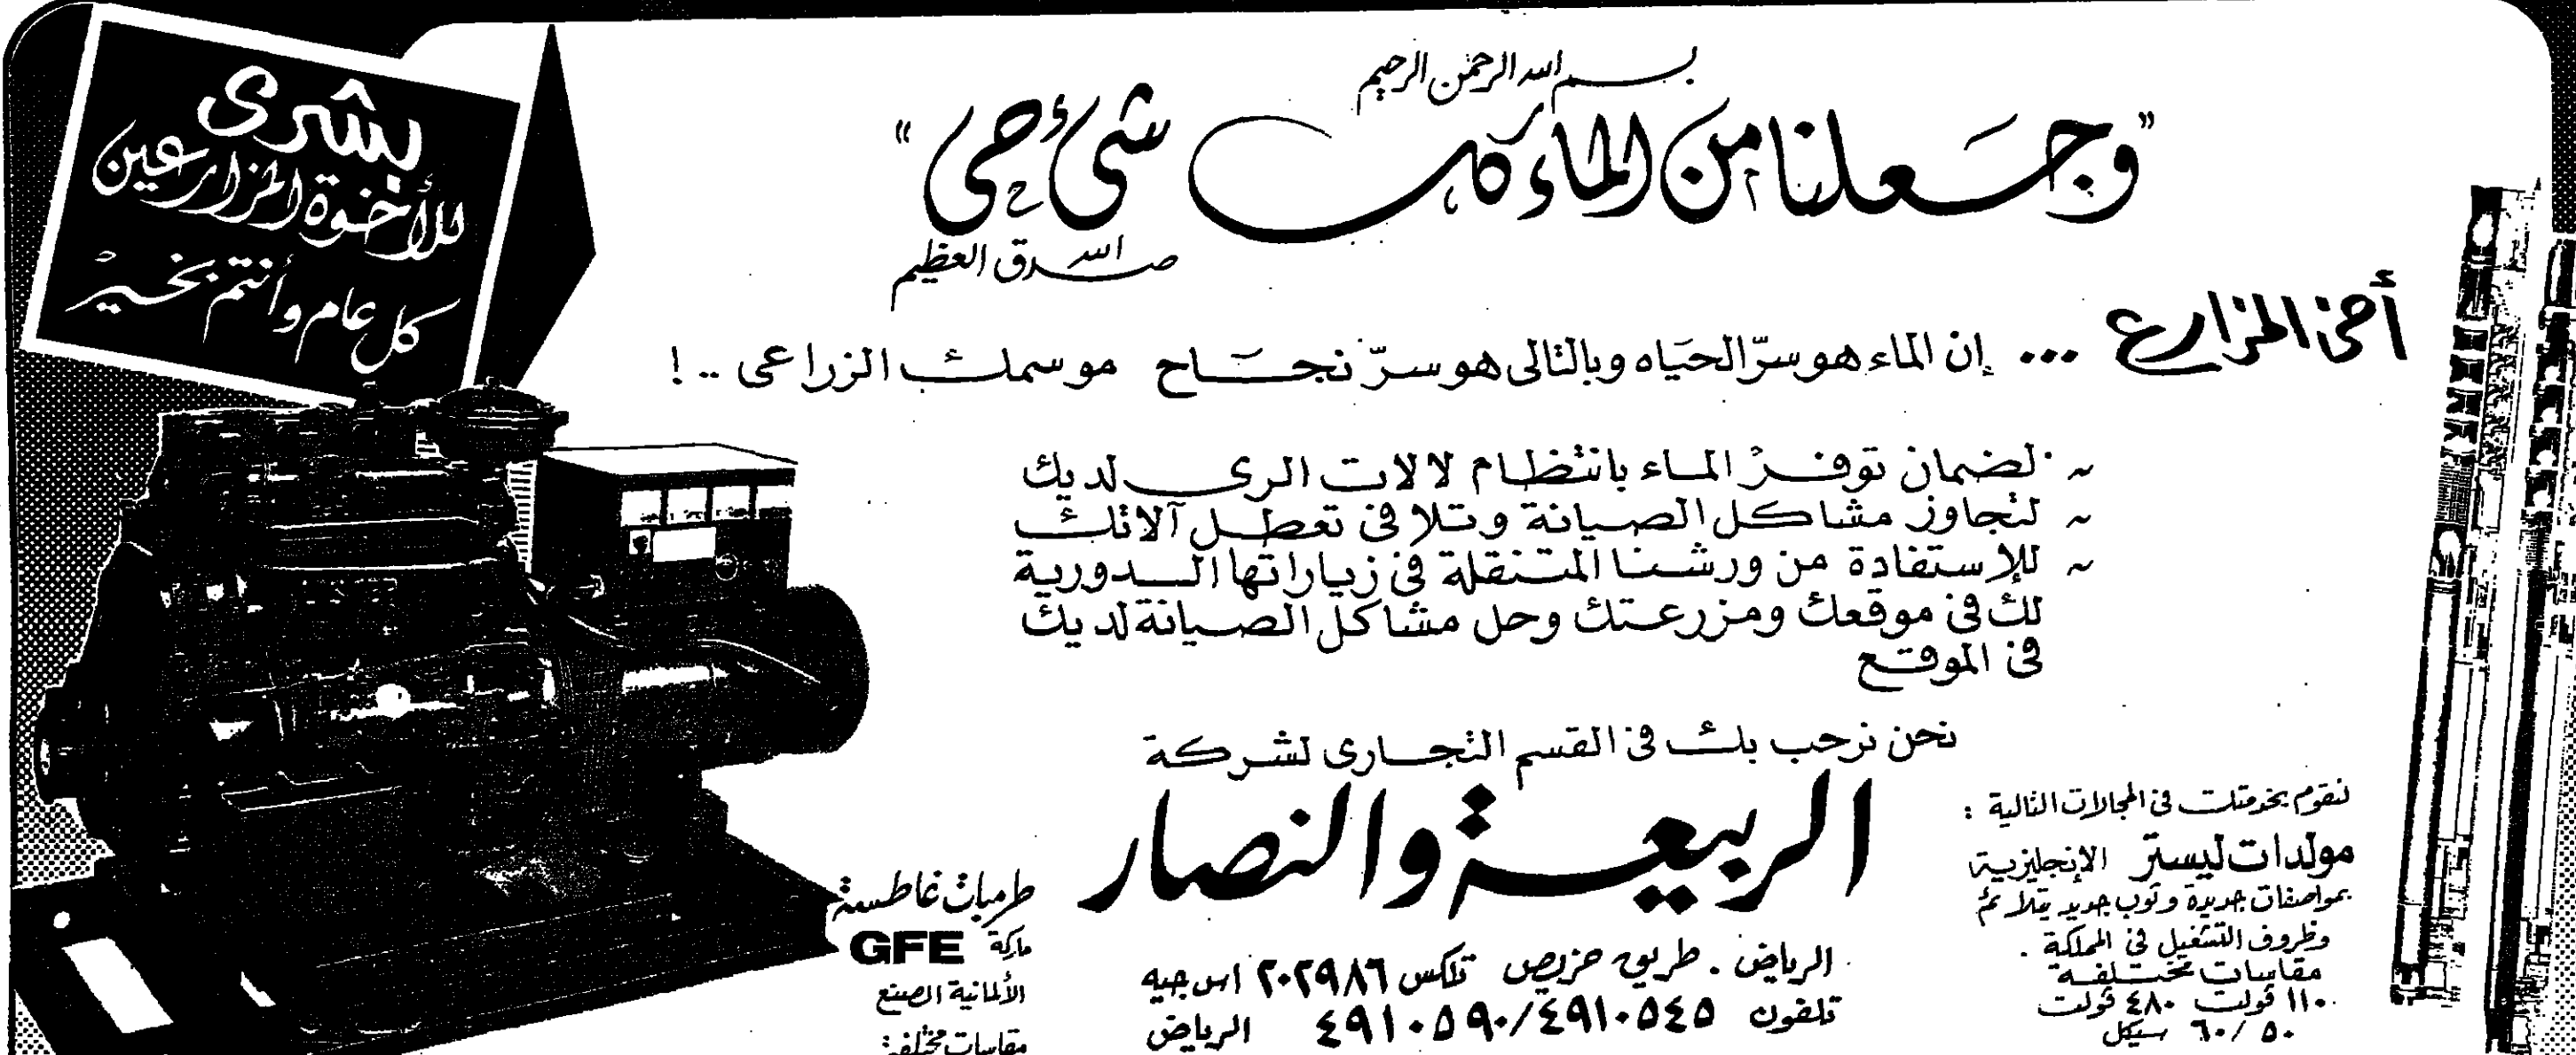 بشرى
للأخوة المزارعين
كل عام وأنتم بخير
بسم الله الرحمن الرحيم
"وجعلنا من الماء كل شئ حى"
صدق الله العظيم
أخى المزارع ... إن الماء هو سرّ الحياه وبالتالى هو سرّ نجاح موسمك الزراعى ..!
~ لضمان توفر الماء بانتظام لالات الرى لديك
~ لتجاوز مشاكل الصيانة وتلافى تعطل آلاتك
~ للإستفادة من ورشنا المتنقلة فى زياراتها الدورية
لك فى موقعك ومزرعتك وحل مشاكل الصيانة لديك
فى الموقع
نحن نرحب بك فى القسم التجارى لشركة
الربيعة والنصار
الرياض . طريق خريص تلكس ٢٠٢٩٨٦ اس جيه
تلفون ٤٩١٠٥٤٥/٤٩١٠٥٩٠ الرياض
لنقوم بخدمتك فى المجالات التالية :
مولدات ليستر الإنجليزية
بمواصفات جديدة وثوب جديد يتلائم
وظروف التشغيل فى المملكة .
مقاسات مختلفة
١١٠ ڤولت ٤٨٠ ڤولت
٦٠/٥٠ سيكل
طرمبات غاطسة
ماركة GFE
الألمانية الصنع
مقاسات مختلفة: